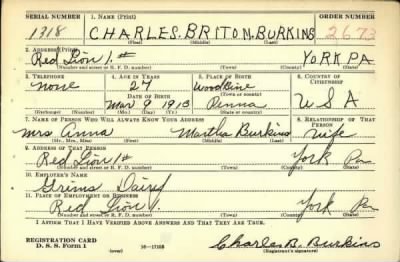 SERIAL NUMBER 1. NAME (Print) ORDER NUMBER
1318 CHARLES. BRITON. BURKINS 2673
(First) (Middle) (Last)
2. ADDRESS (Print)
Red Lion 1.# YORK PA
(Number and street or R. F. D. number) (Town) (County) (State)
3. TELEPHONE 4. AGE IN YEARS 5. PLACE OF BIRTH 6. COUNTRY OF CITIZENSHIP
none 27 Woodbine
DATE OF BIRTH (Town or county)
Mar 9 1913 Penna U S A
(Exchange) (Number) (Mo.) (Day) (Yr.) (State or country)
7. NAME OF PERSON WHO WILL ALWAYS KNOW YOUR ADDRESS 8. RELATIONSHIP OF THAT PERSON
Mrs Anna Martha Burkins wife
(Mr., Mrs., Miss) (First) (Middle) (Last)
9. ADDRESS OF THAT PERSON
Red Lion 1# York Pa
(Number and street or R. F. D. number) (Town) (County) (State)
10. EMPLOYER'S NAME
Grims Dairy
11. PLACE OF EMPLOYMENT OR BUSINESS
Red Lion 1. York Pa
(Number and street or R. F. D. number) (Town) (County) (State)
I AFFIRM THAT I HAVE VERIFIED ABOVE ANSWERS AND THAT THEY ARE TRUE.
REGISTRATION CARD
D. S. S. Form 1 (over) 16—17105 Charles B. Burkins
(Registrant's signature)